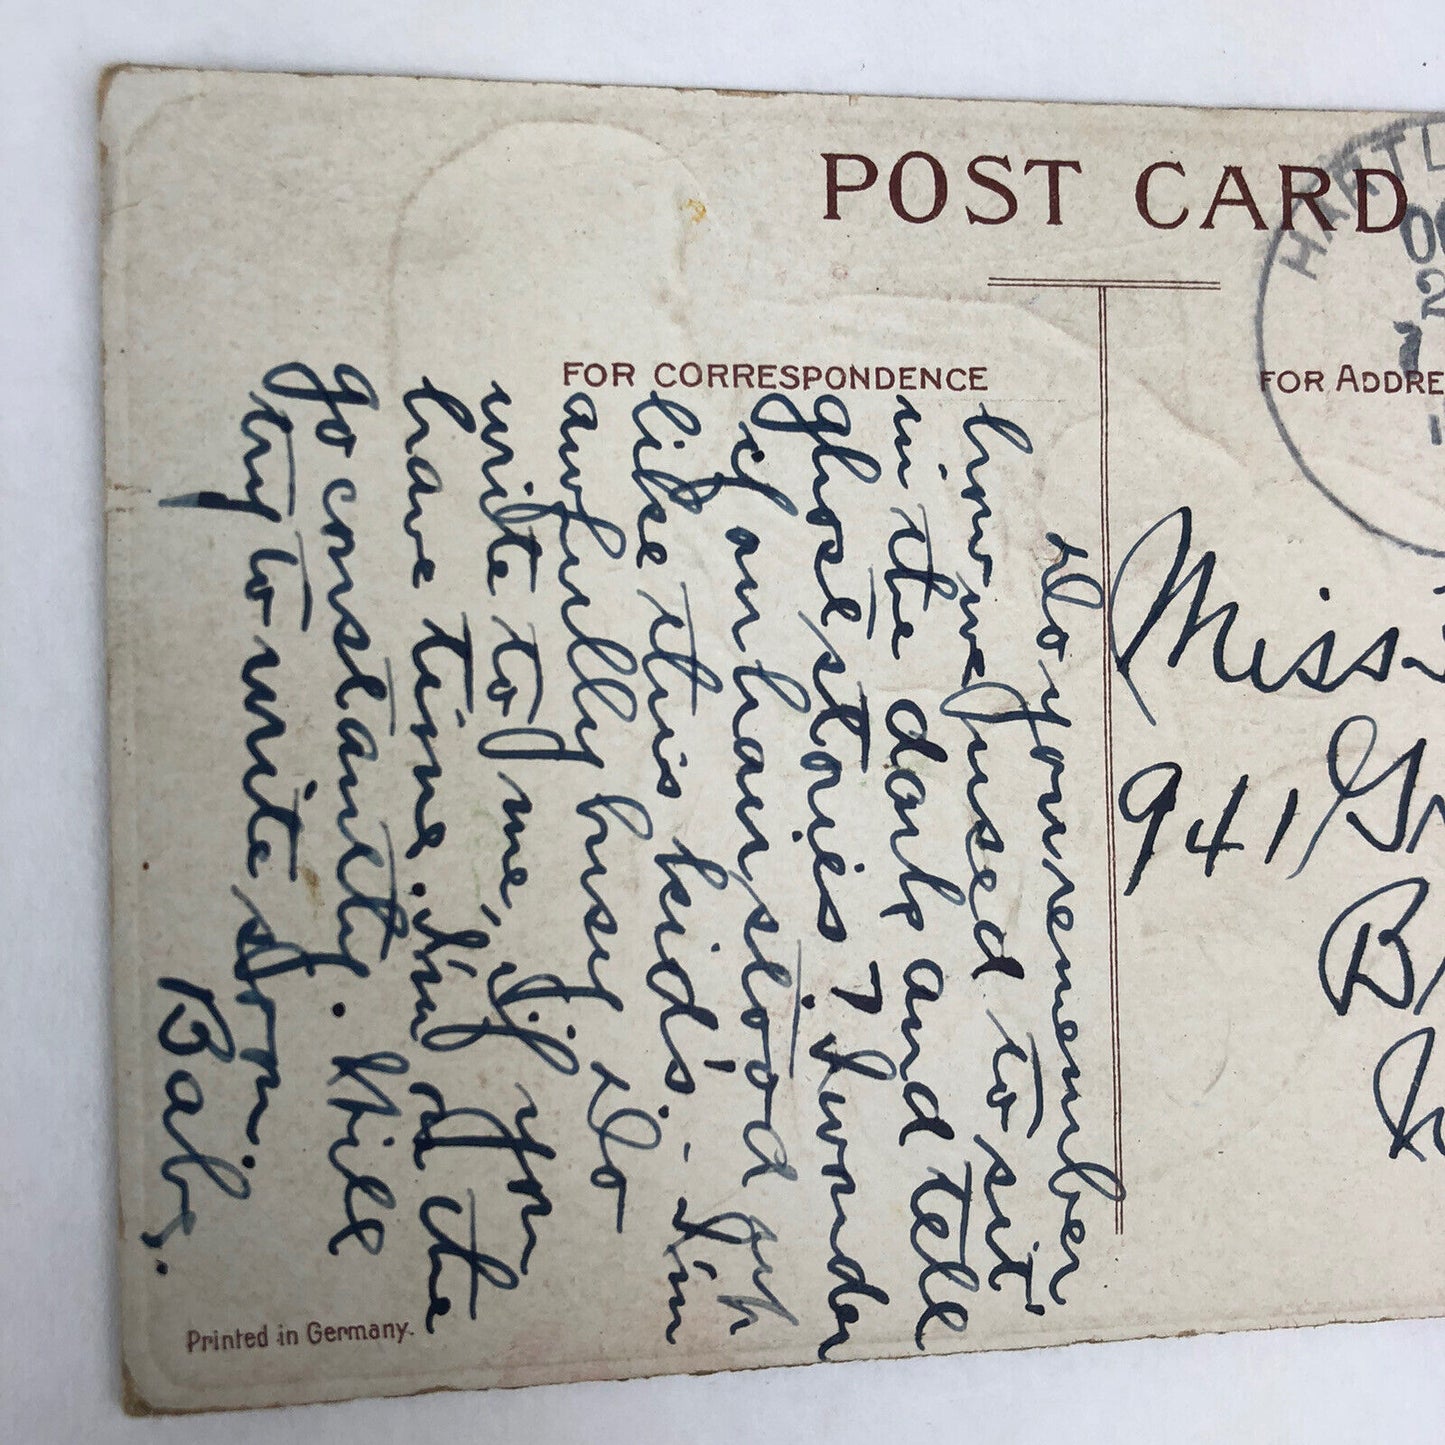 POST CARD
FOR CORRESPONDENCE
FOR ADDRE
HARTL
2
7
Do you remember
how we used to sit
in the dark and tell
ghost stories? I wonder
if our hair stood
like this kid's. - I'm
awfully busy. Do
write to me, if you
have time. I'm on the
go constantly. Will
try to write soon.
Babs.
Miss
941 Gr
B
Printed in Germany.